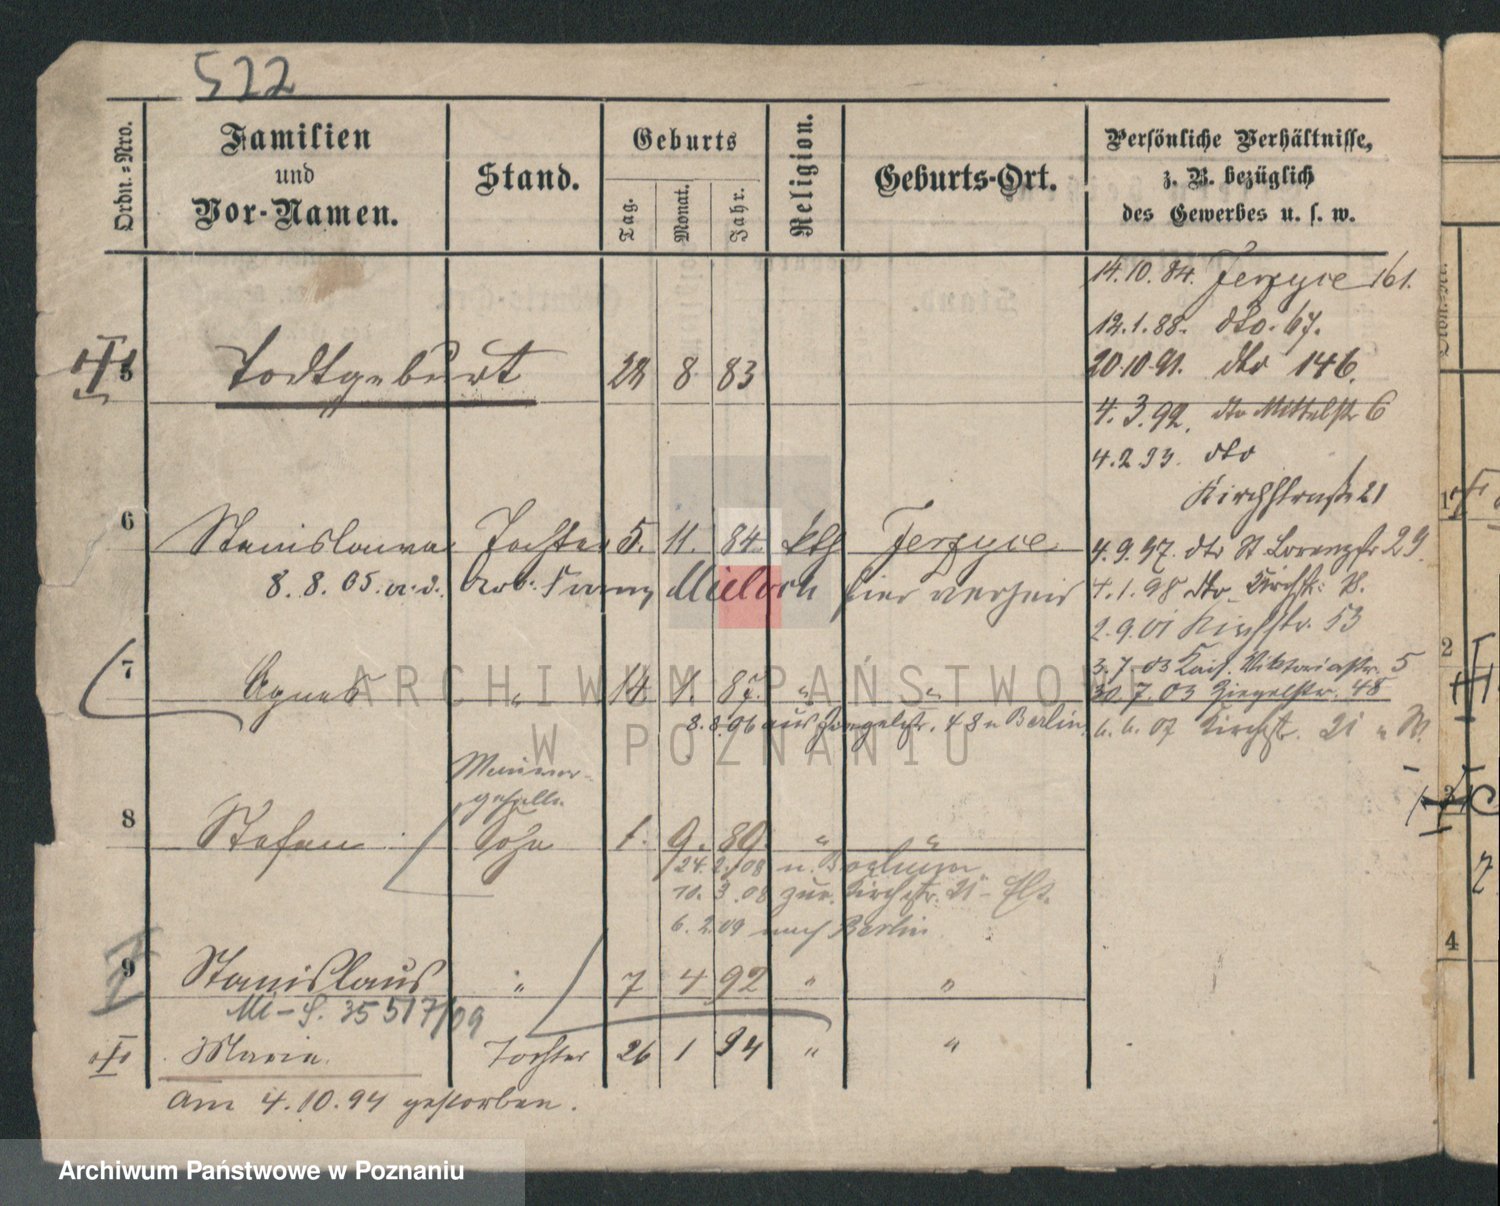 522
Ordn.-Nro.
Familien
und
Vor-Namen.
Stand.
Geburts
Tag.
Monat.
Jahr.
Religion.
Geburts-Ort.
Persönliche Verhältnisse,
z. B. bezüglich
des Gewerbes u. s. w.
14.10.84. Jerzyce 161.
12.1.88. dto. 67.
5 Todtgeburt 28 8 83
20.10.91. dto 146.
4.3.92. dto Mittelstr 6
4.2.93. dto
Kirchstraße 21
6 Stanislawa Tochter 5. 11. 84. kth Jerzyce
4.9.97. dto St Lorenzstr 29.
8.8.05. a.d. Arb. Franz Mieloch hier verheir
4.1.98 dto Kirchstr.
2.9.01 Kirchstr. 53
7 Agnes " 14 1. 87. " "
3.7.03 Kais. Viktoriastr. 5
30.7.03 Ziegelstr. 48
8.8.06 aus Ziegelstr. 48 n Berlin.
6.6.07 Kirchstr. 21
Maurer-
geselle
8 Stefan Sohn 1. 9. 89. " "
24.2.08 n. Bochum
10.3.08 zur. Kirchstr. 21
6.2.09 nach Berlin
9 Stanislaus " 7 4 92 " "
35 517/09
Maria. Tochter 26 1 94 " "
Am 4.10.94 gestorben.
1
2
3
4
ARCHIWUM PAŃSTWOWE
W POZNANIU
Archiwum Państwowe w Poznaniu